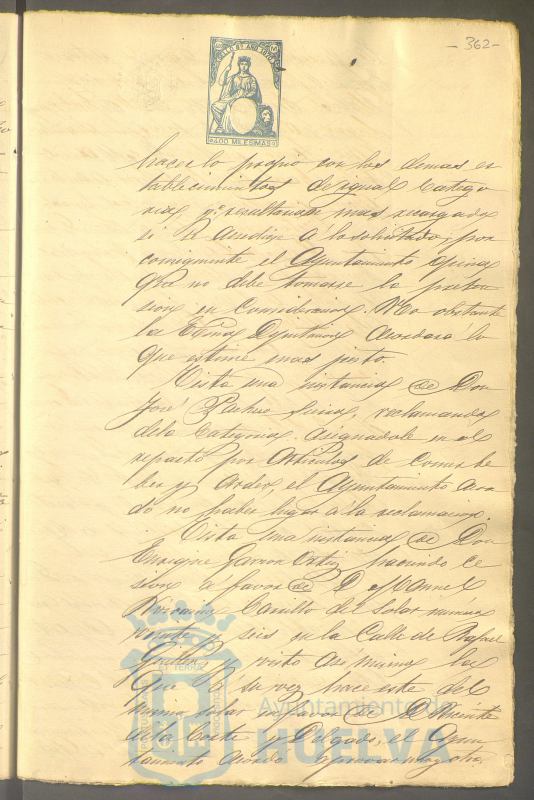 -362-
SELLO 9º AÑO 1870
400 MILESIMAS
hacer lo propio con los demas es
tablecimientos de igual Catego
ria, y resultarian mas recargados
si se accediese á lo solicitado; por
consiguiente el Ayuntamiento opina
que no debe tomarse la preten
sion en consideracion. No obstante
la Exma Diputacion acordará lo
que estime mas justo.
Vista una instancia de Don
José Pacheco reclamando
de la Categoria asignadole en el
reparto por Articulos de Comer be
ber y Arder, el Ayuntamiento acor
dó no haber lugar á la reclamacion.
Vista una instancia de Don
Enrique Garcia Ortiz haciendo ce
sion á favor de D. Manuel
Carrillo del Solar numero
veinte y seis en la Calle de Rafael
y visto asi mismo la
que á su vez hace este del
mismo solar en favor de D. Vicente
Corte y Delgado, el Ayun
tamiento acordó aprobar
Ayuntamiento de
HUELVA